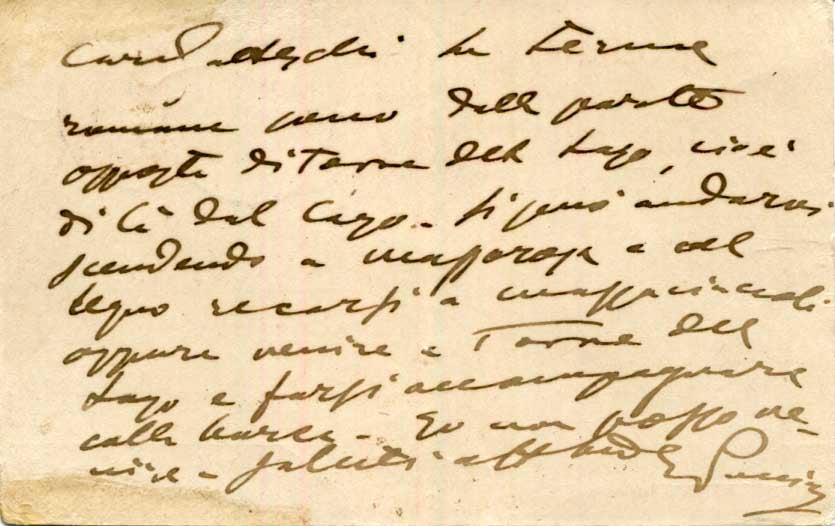 Caro le terme
romane sono dalla parte
opposta di Torre del Lago, cioè
di là dal Lago. Si può andarvi
scendendo a Massarosa e col
legno recarsi a Massaciuccoli
oppure venire a Torre del
Lago e farsi accompagnare
colla barca. Io non posso ve-
nire. Saluti GPuccini